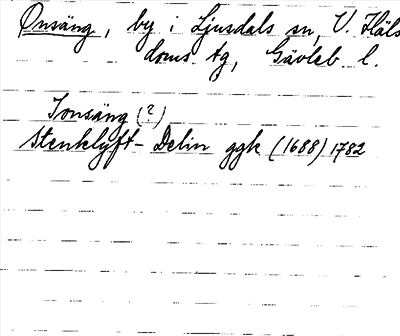 Onsäng, by i Ljusdals sn, V. Häls
doms tg, Gävleb. l.
Jonsäng (?)
Stenklyft-Delin ggk (1688) 1782